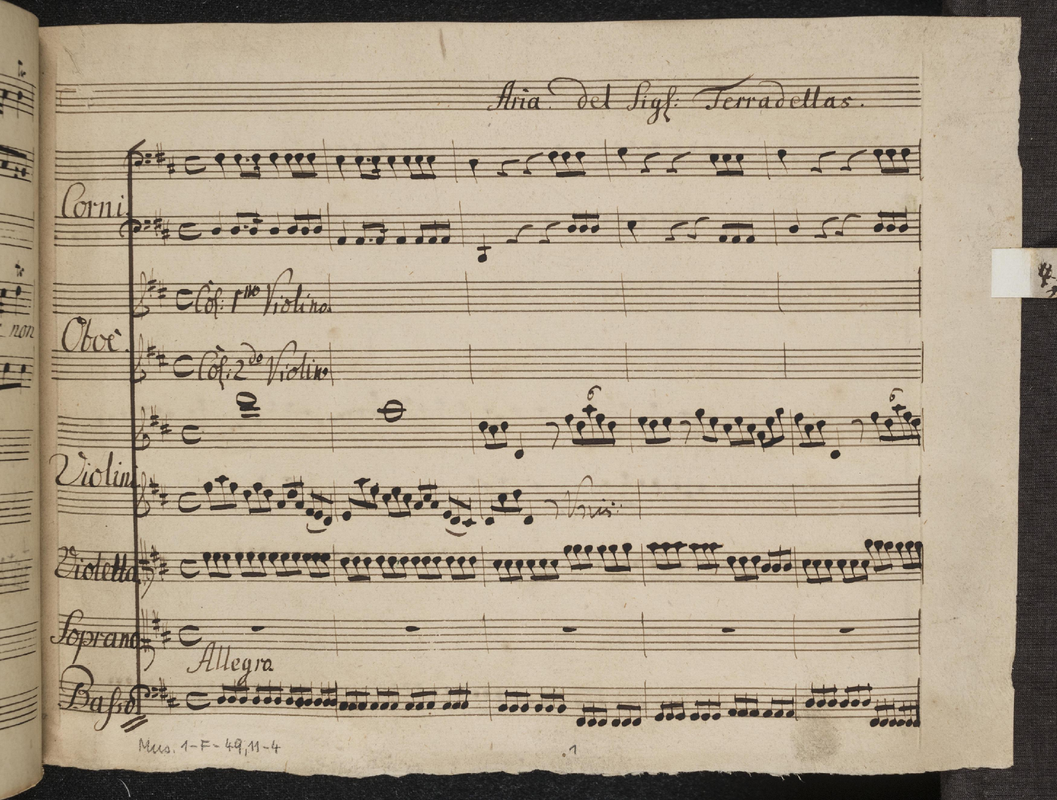 Aria. del Sigʳ: Terradellas.
Corni.
Oboè.
Col: 1ᵐᵒ Violino.
Col: 2ᵈᵒ Violino
6
6
Violini
Unis:
Violetta
Soprano
Allegra
Basso
Mus. 1-F-49,11-4
.1
non
4